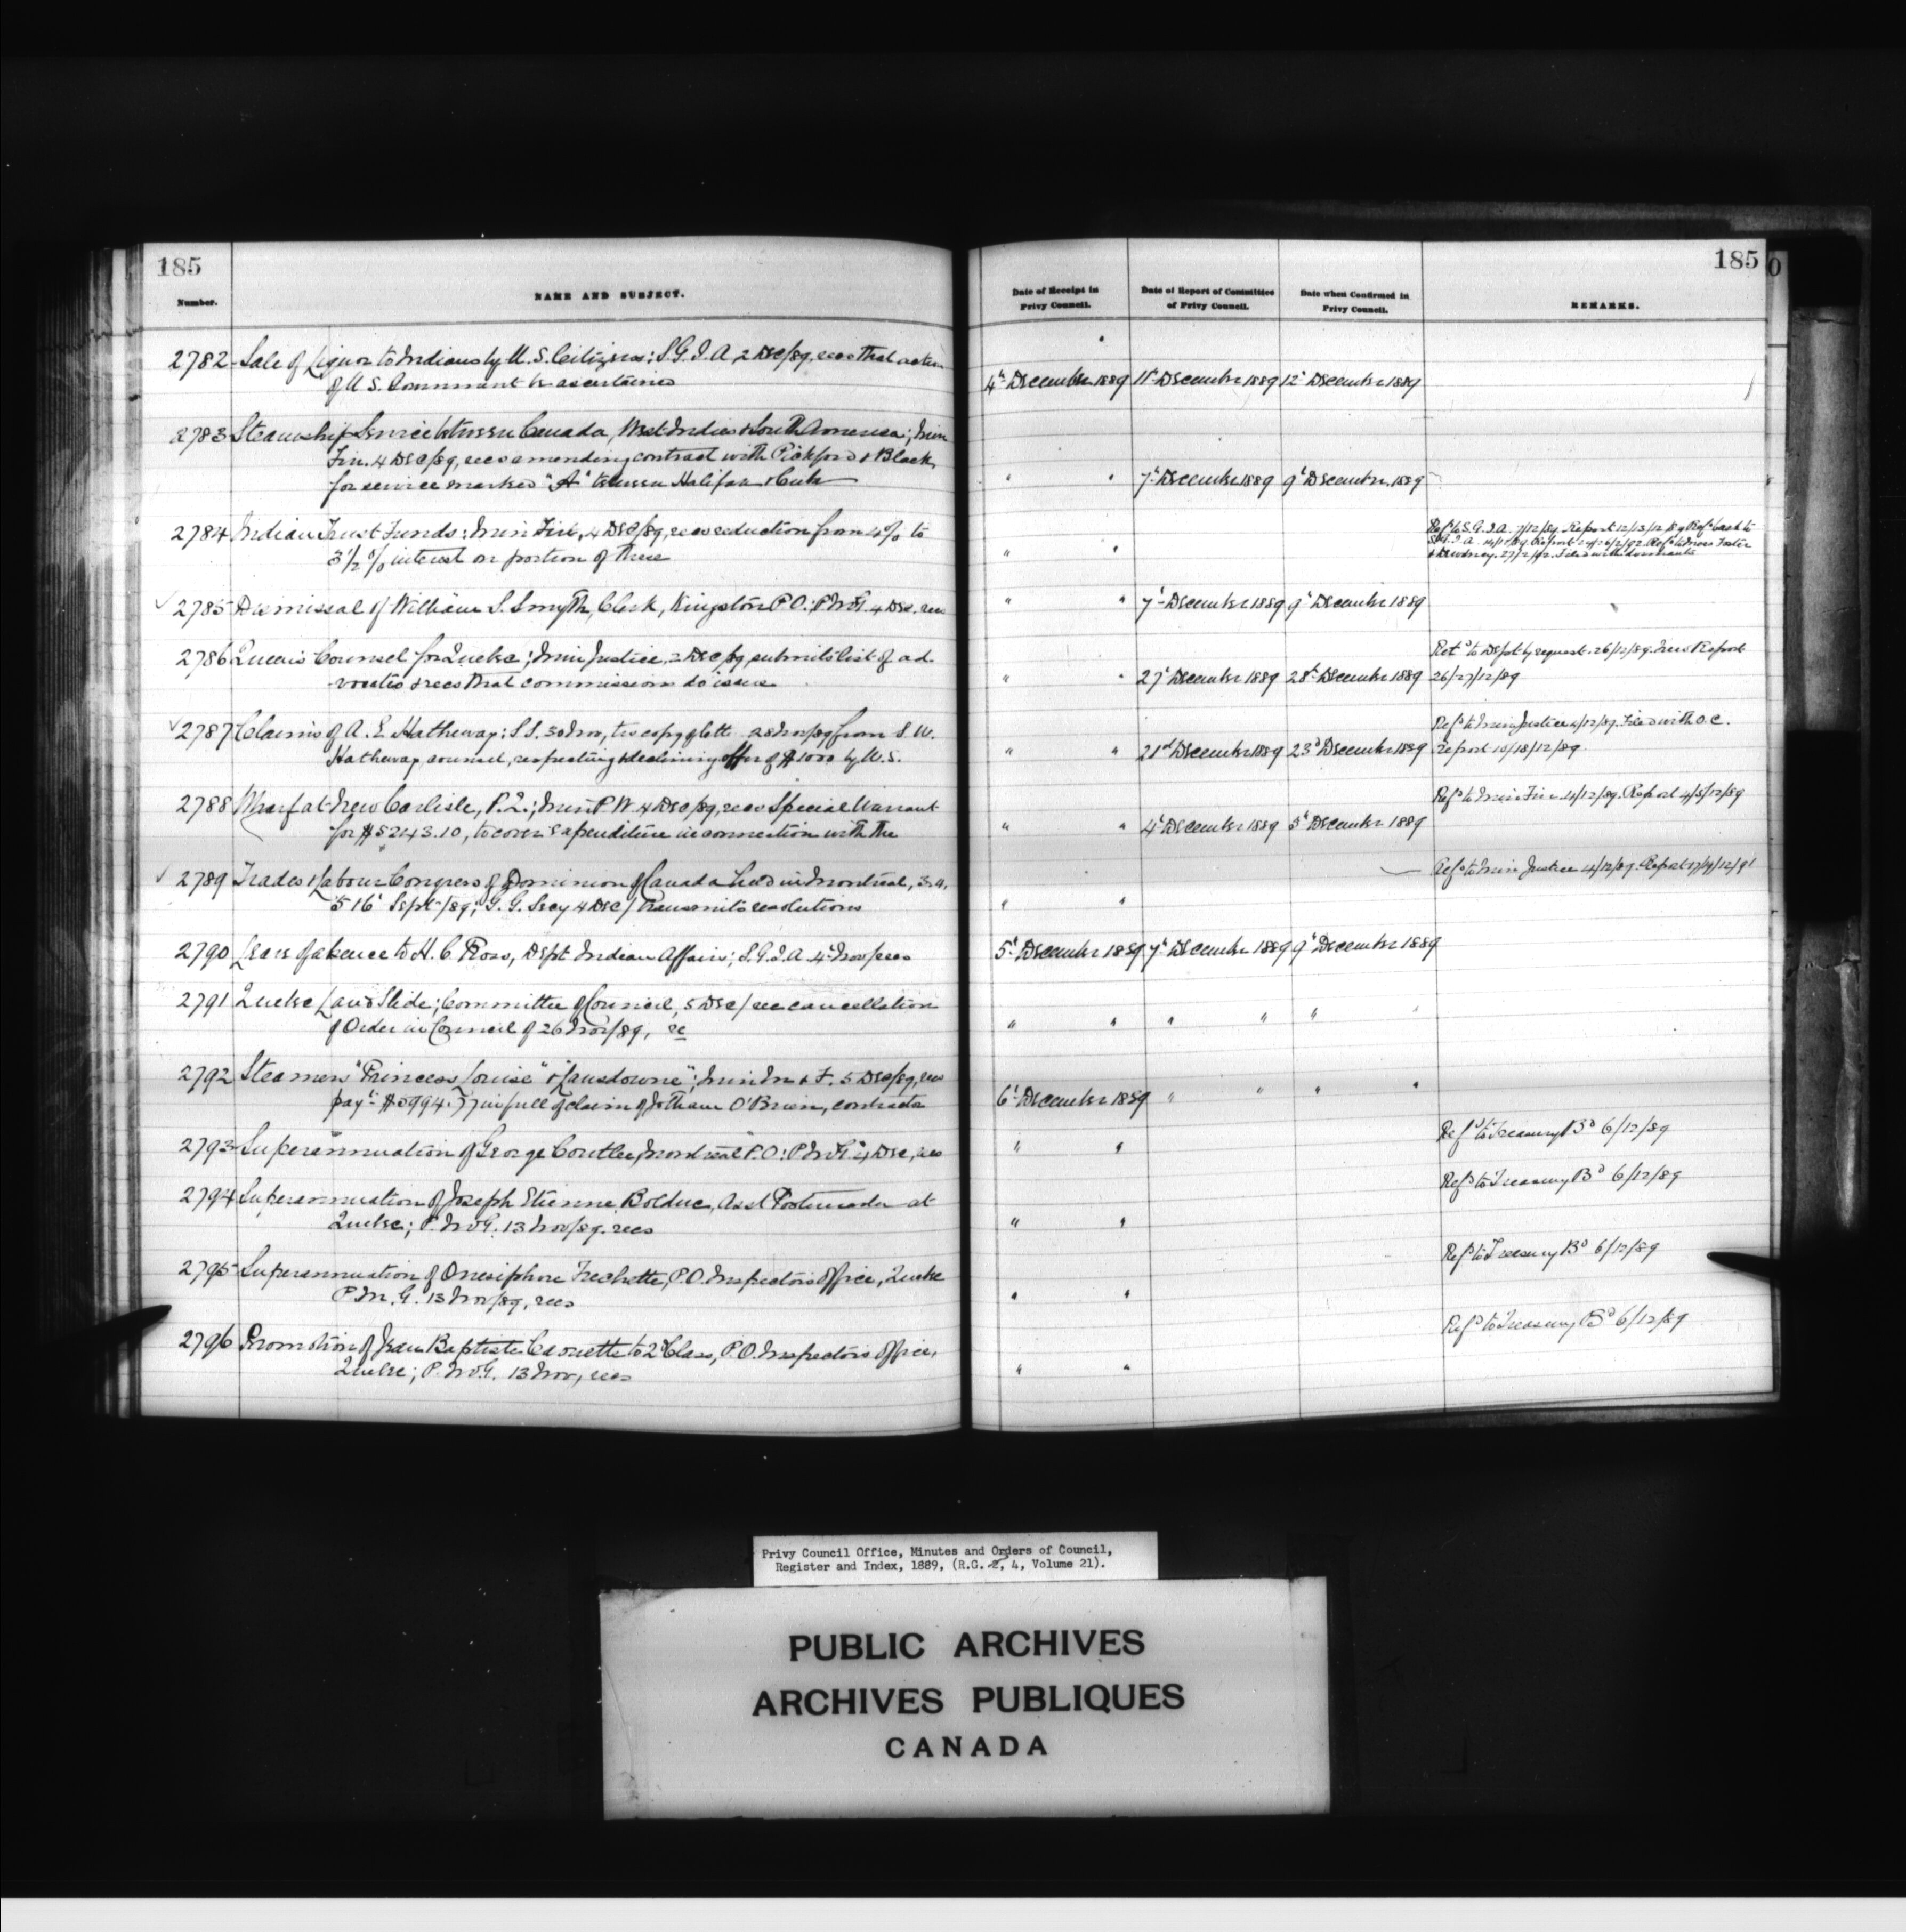 185
Number.
NAME AND SUBJECT.
2782 Sale of Liquor to Indians by U.S. Citizens; S.G.I.A. 2 Dec/89, recs that action
of U.S. Government be ascertained
2783 Steamship Service between Canada, West Indies & South America; Min
Fin. 4 Dec/89, recs amending contract with Pickford & Black,
for service marked "A" between Halifax & Cuba
2784 Indian Trust Funds; Min Fin, 4 Dec/89, recs reduction from 4% to
3 1/2 % interest on portion of these
2785 Dismissal of William S. Smyth, Clerk, Kingston P.O.; P.M.G. 4 Dec, recs
2786 Queen's Counsel for Quebec; Min Justice, 2 Dec/89, submits list of ad-
vocates & recs that commissions do issue
2787 Claims of A. E. Hatheway; S.S. 30 Nov, tr copy of lett 28 Nov/89 from S. W.
Hatheway, counsel, respecting & declining offer of $1000 by U.S.
2788 Wharf at New Carlisle, P.Q.; Min P.W. 4 Dec/89, recs Special Warrant
for $5243.10, to cover expenditure in connection with the
2789 Trades & Labour Congress of Dominion of Canada held in Montreal, 3, 4,
5 & 6 Sept/89; G. G. Secy 4 Dec/ transmits resolutions
2790 Leave of absence to H. C. Ross, Dept Indian Affairs; S.G.I.A. 4 Nov/recs
2791 Quebec Land Slide; Committee of Council, 5 Dec/ rec cancellation
of Order in Council of 26 Nov/89, &c
2792 Steamers "Princess Louise" & "Lansdowne"; Min M & F. 5 Dec/89, recs
payt $5994.77 in full of claim of Jotham O'Brien, contractor
2793 Superannuation of George Coutlee, Montreal P.O.; P.M.G. 4 Dec, recs
2794 Superannuation of Joseph Etienne Bolduc, Asst Postmaster at
Quebec; P.M.G. 13 Nov/89. recs
2795 Superannuation of Onesiphore Frechette, P.O. Inspectors Office, Quebec
P.M.G. 13 Nov/89, recs
2796 Promotion of Jean Baptiste Caouette to 2d Class, P.O. Inspectors Office,
Quebec; P.M.G. 13 Nov, recs
185
Date of Receipt in
Privy Council.
Date of Report of Committee
of Privy Council.
Date when Confirmed in
Privy Council.
REMARKS.
4th December 1889 11th December 1889 12th December 1889
" " 7th December 1889 9th December 1889
Refd to S.G.I.A. 7/12/89. Report 12/13/12/89 Refd back to
" " Filed with dormants
" " 7th December 1889 9th December 1889
Retd to Dept by request. 26/12/89. New Report
" " 27th December 1889 28th December 1889 26/27/12/89
Refd to Min Justice 4/12/89. Filed with O.C.
" " 21st December 1889 23d December 1889 Report 10/18/12/89
Refd to Min Fin. 4/12/89. Report 4/5/12/89
" " 4th December 1889 5th December 1889
Refd to Min Justice 4/12/89. Report
" "
5th December 1889 7th December 1889 9th December 1889
" " " " " "
6th December 1889 " " " "
Refd to Treasury Bd 6/12/89
" "
Refd to Treasury Bd 6/12/89
" "
Refd to Treasury Bd 6/12/89
" "
Refd to Treasury Bd 6/12/89
" "
Privy Council Office, Minutes and Orders of Council,
Register and Index, 1889, (R.G. 2, 4, Volume 21).
PUBLIC ARCHIVES
ARCHIVES PUBLIQUES
CANADA